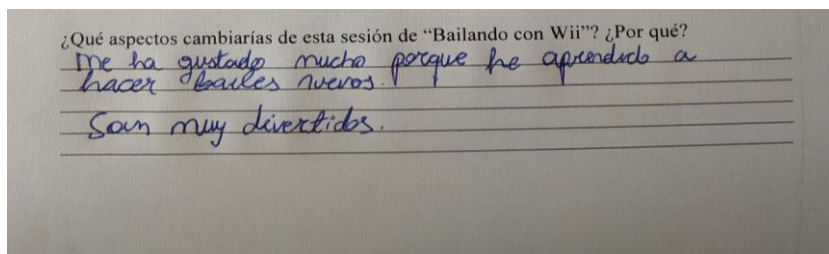 ¿Qué aspectos cambiarías de esta sesión de “Bailando con Wii”? ¿Por qué?
Me ha gustado mucho porque he aprendido a
hacer bailes nuevos.
Son muy divertidos.